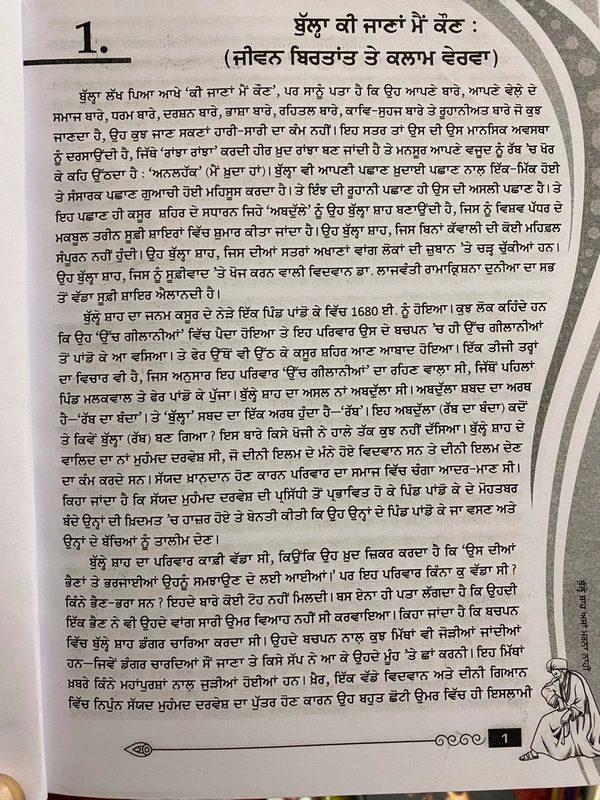 1.
ਬੁੱਲ੍ਹਾ ਕੀ ਜਾਣਾਂ ਮੈਂ ਕੌਣ :
(ਜੀਵਨ ਬਿਰਤਾਂਤ ਤੇ ਕਲਾਮ ਵੇਰਵਾ)
ਬੁੱਲ੍ਹਾ ਲੱਖ ਪਿਆ ਆਖੇ ‘ਕੀ ਜਾਣਾਂ ਮੈਂ ਕੌਣ’, ਪਰ ਸਾਨੂੰ ਪਤਾ ਹੈ ਕਿ ਉਹ ਆਪਣੇ ਬਾਰੇ, ਆਪਣੇ ਵੇਲੇ ਦੇ
ਸਮਾਜ ਬਾਰੇ, ਧਰਮ ਬਾਰੇ, ਦਰਸ਼ਨ ਬਾਰੇ, ਭਾਸ਼ਾ ਬਾਰੇ, ਰਹਿਤਲ ਬਾਰੇ, ਕਾਵਿ-ਸੁਹਜ ਬਾਰੇ ਤੇ ਰੂਹਾਨੀਅਤ ਬਾਰੇ ਜੋ ਕੁਝ
ਜਾਣਦਾ ਹੈ, ਉਹ ਕੁਝ ਜਾਣ ਸਕਣਾਂ ਹਾਰੀ-ਸਾਰੀ ਦਾ ਕੰਮ ਨਹੀਂ। ਇਹ ਸਤਰ ਤਾਂ ਉਸ ਦੀ ਉਸ ਮਾਨਸਿਕ ਅਵਸਥਾ
ਨੂੰ ਦਰਸਾਉਂਦੀ ਹੈ, ਜਿੱਥੇ ‘ਰਾਂਝਾ ਰਾਂਝਾ’ ਕਰਦੀ ਹੀਰ ਖ਼ੁਦ ਰਾਂਝਾ ਬਣ ਜਾਂਦੀ ਹੈ ਤੇ ਮਨਸੂਰ ਆਪਣੇ ਵਜੂਦ ਨੂੰ ਰੱਬ ’ਚ ਖੋਰ
ਕੇ ਕਹਿ ਉੱਠਦਾ ਹੈ : ‘ਅਨਲਹੱਕ’ (ਮੈਂ ਖ਼ੁਦਾ ਹਾਂ)। ਬੁੱਲ੍ਹਾ ਵੀ ਆਪਣੀ ਪਛਾਣ ਖ਼ੁਦਾਈ ਪਛਾਣ ਨਾਲ਼ ਇੱਕ-ਮਿੱਕ ਹੋਈ
ਤੇ ਸੰਸਾਰਕ ਪਛਾਣ ਗੁਆਚੀ ਹੋਈ ਮਹਿਸੂਸ ਕਰਦਾ ਹੈ। ਤੇ ਇੰਝ ਦੀ ਰੂਹਾਨੀ ਪਛਾਣ ਹੀ ਉਸ ਦੀ ਅਸਲੀ ਪਛਾਣ ਹੈ। ਤੇ
ਇਹ ਪਛਾਣ ਹੀ ਕਸੂਰ ਸ਼ਹਿਰ ਦੇ ਸਧਾਰਨ ਜਿਹੇ ‘ਅਬਦੁੱਲੇ’ ਨੂੰ ਉਹ ਬੁੱਲ੍ਹਾ ਸ਼ਾਹ ਬਣਾਉਂਦੀ ਹੈ, ਜਿਸ ਨੂੰ ਵਿਸ਼ਵ ਪੱਧਰ ਦੇ
ਮਕਬੂਲ ਤਰੀਨ ਸੂਫ਼ੀ ਸ਼ਾਇਰਾਂ ਵਿੱਚ ਸ਼ੁਮਾਰ ਕੀਤਾ ਜਾਂਦਾ ਹੈ। ਉਹ ਬੁੱਲ੍ਹਾ ਸ਼ਾਹ, ਜਿਸ ਬਿਨਾਂ ਕੱਵਾਲੀ ਦੀ ਕੋਈ ਮਹਿਫ਼ਲ
ਸੰਪੂਰਨ ਨਹੀਂ ਹੁੰਦੀ। ਉਹ ਬੁੱਲ੍ਹਾ ਸ਼ਾਹ, ਜਿਸ ਦੀਆਂ ਸਤਰਾਂ ਅਖਾਣਾਂ ਵਾਂਗ ਲੋਕਾਂ ਦੀ ਜ਼ੁਬਾਨ ’ਤੇ ਚੜ੍ਹ ਚੁੱਕੀਆਂ ਹਨ।
ਉਹ ਬੁੱਲ੍ਹਾ ਸ਼ਾਹ, ਜਿਸ ਨੂੰ ਸੂਫ਼ੀਵਾਦ ’ਤੇ ਖੋਜ ਕਰਨ ਵਾਲੀ ਵਿਦਵਾਨ ਡਾ. ਲਾਜਵੰਤੀ ਰਾਮਾਕ੍ਰਿਸ਼ਨਾ ਦੁਨੀਆ ਦਾ ਸਭ
ਤੋਂ ਵੱਡਾ ਸੂਫ਼ੀ ਸ਼ਾਇਰ ਐਲਾਨਦੀ ਹੈ।
ਬੁੱਲ੍ਹੇ ਸ਼ਾਹ ਦਾ ਜਨਮ ਕਸੂਰ ਦੇ ਨੇੜੇ ਇੱਕ ਪਿੰਡ ਪਾਂਡੋ ਕੇ ਵਿੱਚ 1680 ਈ. ਨੂੰ ਹੋਇਆ। ਕੁਝ ਲੋਕ ਕਹਿੰਦੇ ਹਨ
ਕਿ ਉਹ ‘ਉੱਚ ਗੀਲਾਨੀਆਂ’ ਵਿੱਚ ਪੈਦਾ ਹੋਇਆ ਤੇ ਇਹ ਪਰਿਵਾਰ ਉਸ ਦੇ ਬਚਪਨ ’ਚ ਹੀ ਉੱਚ ਗੀਲਾਨੀਆਂ
ਤੋਂ ਪਾਂਡੋ ਕੇ ਆ ਵਸਿਆ। ਤੇ ਫੇਰ ਉੱਥੋਂ ਵੀ ਉੱਠ ਕੇ ਕਸੂਰ ਸ਼ਹਿਰ ਆਣ ਆਬਾਦ ਹੋਇਆ। ਇੱਕ ਤੀਜੀ ਤਰ੍ਹਾਂ
ਦਾ ਵਿਚਾਰ ਵੀ ਹੈ, ਜਿਸ ਅਨੁਸਾਰ ਇਹ ਪਰਿਵਾਰ ‘ਉੱਚ ਗੀਲਾਨੀਆਂ’ ਦਾ ਰਹਿਣ ਵਾਲ਼ਾ ਸੀ, ਜਿੱਥੋਂ ਪਹਿਲਾਂ
ਪਿੰਡ ਮਲਕਵਾਲ ਤੇ ਫੇਰ ਪਾਂਡੋ ਕੇ ਪੁੱਜਾ। ਬੁੱਲ੍ਹੇ ਸ਼ਾਹ ਦਾ ਅਸਲ ਨਾਂ ਅਬਦੁੱਲਾ ਸੀ। ਅਬਦੁੱਲਾ ਸ਼ਬਦ ਦਾ ਅਰਥ
ਹੈ—‘ਰੱਬ ਦਾ ਬੰਦਾ’। ਤੇ ‘ਬੁੱਲ੍ਹਾ’ ਸਬਦ ਦਾ ਇੱਕ ਅਰਥ ਹੁੰਦਾ ਹੈ—‘ਰੱਬ’। ਇਹ ਅਬਦੁੱਲਾ (ਰੱਬ ਦਾ ਬੰਦਾ) ਕਦੋਂ
ਤੇ ਕਿਵੇਂ ਬੁੱਲ੍ਹਾ (ਰੱਬ) ਬਣ ਗਿਆ ? ਇਸ ਬਾਰੇ ਕਿਸੇ ਖੋਜੀ ਨੇ ਹਾਲੇ ਤੱਕ ਕੁਝ ਨਹੀਂ ਦੱਸਿਆ। ਬੁੱਲ੍ਹੇ ਸ਼ਾਹ ਦੇ
ਵਾਲਿਦ ਦਾ ਨਾਂ ਮੁਹੰਮਦ ਦਰਵੇਸ਼ ਸੀ, ਜੋ ਦੀਨੀ ਇਲਮ ਦੇ ਮੰਨੇ ਹੋਏ ਵਿਦਵਾਨ ਸਨ ਤੇ ਦੀਨੀ ਇਲਮ ਦੇਣ
ਦਾ ਕੰਮ ਕਰਦੇ ਸਨ। ਸੱਯਦ ਖ਼ਾਨਦਾਨ ਹੋਣ ਕਾਰਨ ਪਰਿਵਾਰ ਦਾ ਸਮਾਜ ਵਿੱਚ ਚੰਗਾ ਆਦਰ-ਮਾਣ ਸੀ।
ਕਿਹਾ ਜਾਂਦਾ ਹੈ ਕਿ ਸੱਯਦ ਮੁਹੰਮਦ ਦਰਵੇਸ਼ ਦੀ ਪ੍ਰਸਿੱਧੀ ਤੋਂ ਪ੍ਰਭਾਵਿਤ ਹੋ ਕੇ ਪਿੰਡ ਪਾਂਡੋ ਕੇ ਦੇ ਮੋਹਤਬਰ
ਬੰਦੇ ਉਨ੍ਹਾਂ ਦੀ ਖ਼ਿਦਮਤ ’ਚ ਹਾਜ਼ਰ ਹੋਏ ਤੇ ਬੇਨਤੀ ਕੀਤੀ ਕਿ ਉਹ ਉਨ੍ਹਾਂ ਦੇ ਪਿੰਡ ਪਾਂਡੋ ਕੇ ਜਾ ਵਸਣ ਅਤੇ
ਉਨ੍ਹਾਂ ਦੇ ਬੱਚਿਆਂ ਨੂੰ ਤਾਲੀਮ ਦੇਣ।
ਬੁੱਲ੍ਹੇ ਸ਼ਾਹ ਦਾ ਪਰਿਵਾਰ ਕਾਫ਼ੀ ਵੱਡਾ ਸੀ, ਕਿਉਂਕਿ ਉਹ ਖ਼ੁਦ ਜ਼ਿਕਰ ਕਰਦਾ ਹੈ ਕਿ ‘ਉਸ ਦੀਆਂ
ਭੈਣਾਂ ਤੇ ਭਰਜਾਈਆਂ ਉਹਨੂੰ ਸਮਝਾਉਣ ਦੇ ਲਈ ਆਈਆਂ।’ ਪਰ ਇਹ ਪਰਿਵਾਰ ਕਿੰਨਾ ਕੁ ਵੱਡਾ ਸੀ ?
ਕਿੰਨੇ ਭੈਣ-ਭਰਾ ਸਨ ? ਇਹਦੇ ਬਾਰੇ ਕੋਈ ਟੋਹ ਨਹੀਂ ਮਿਲਦੀ। ਬਸ ਏਨਾ ਹੀ ਪਤਾ ਲੱਗਦਾ ਹੈ ਕਿ ਉਹਦੀ
ਇੱਕ ਭੈਣ ਨੇ ਵੀ ਉਹਦੇ ਵਾਂਗ ਸਾਰੀ ਉਮਰ ਵਿਆਹ ਨਹੀਂ ਸੀ ਕਰਵਾਇਆ। ਕਿਹਾ ਜਾਂਦਾ ਹੈ ਕਿ ਬਚਪਨ
ਵਿੱਚ ਬੁੱਲ੍ਹੇ ਸ਼ਾਹ ਡੰਗਰ ਚਾਰਿਆ ਕਰਦਾ ਸੀ। ਉਹਦੇ ਬਚਪਨ ਨਾਲ਼ ਕੁਝ ਮਿੱਥਾਂ ਵੀ ਜੋੜੀਆਂ ਜਾਂਦੀਆਂ
ਹਨ—ਜਿਵੇਂ ਡੰਗਰ ਚਾਰਦਿਆਂ ਸੌਂ ਜਾਣਾ ਤੇ ਕਿਸੇ ਸੱਪ ਨੇ ਆ ਕੇ ਉਹਦੇ ਮੂੰਹ ’ਤੇ ਛਾਂ ਕਰਨੀ। ਇਹ ਮਿੱਥਾਂ
ਖ਼ਬਰੇ ਕਿੰਨੇ ਮਹਾਂਪੁਰਸ਼ਾਂ ਨਾਲ਼ ਜੁੜੀਆਂ ਹੋਈਆਂ ਹਨ। ਖ਼ੈਰ, ਇੱਕ ਵੱਡੇ ਵਿਦਵਾਨ ਅਤੇ ਦੀਨੀ ਗਿਆਨ
ਵਿੱਚ ਨਿਪੁੰਨ ਸੱਯਦ ਮੁਹੰਮਦ ਦਰਵੇਸ਼ ਦਾ ਪੁੱਤਰ ਹੋਣ ਕਾਰਨ ਉਹ ਬਹੁਤ ਛੋਟੀ ਉਮਰ ਵਿੱਚ ਹੀ ਇਸਲਾਮੀ
ਬੁੱਲ੍ਹੇ ਸ਼ਾਹ ਅਸਾਂ ਮਰਨਾ ਨਾਹੀਂ
1